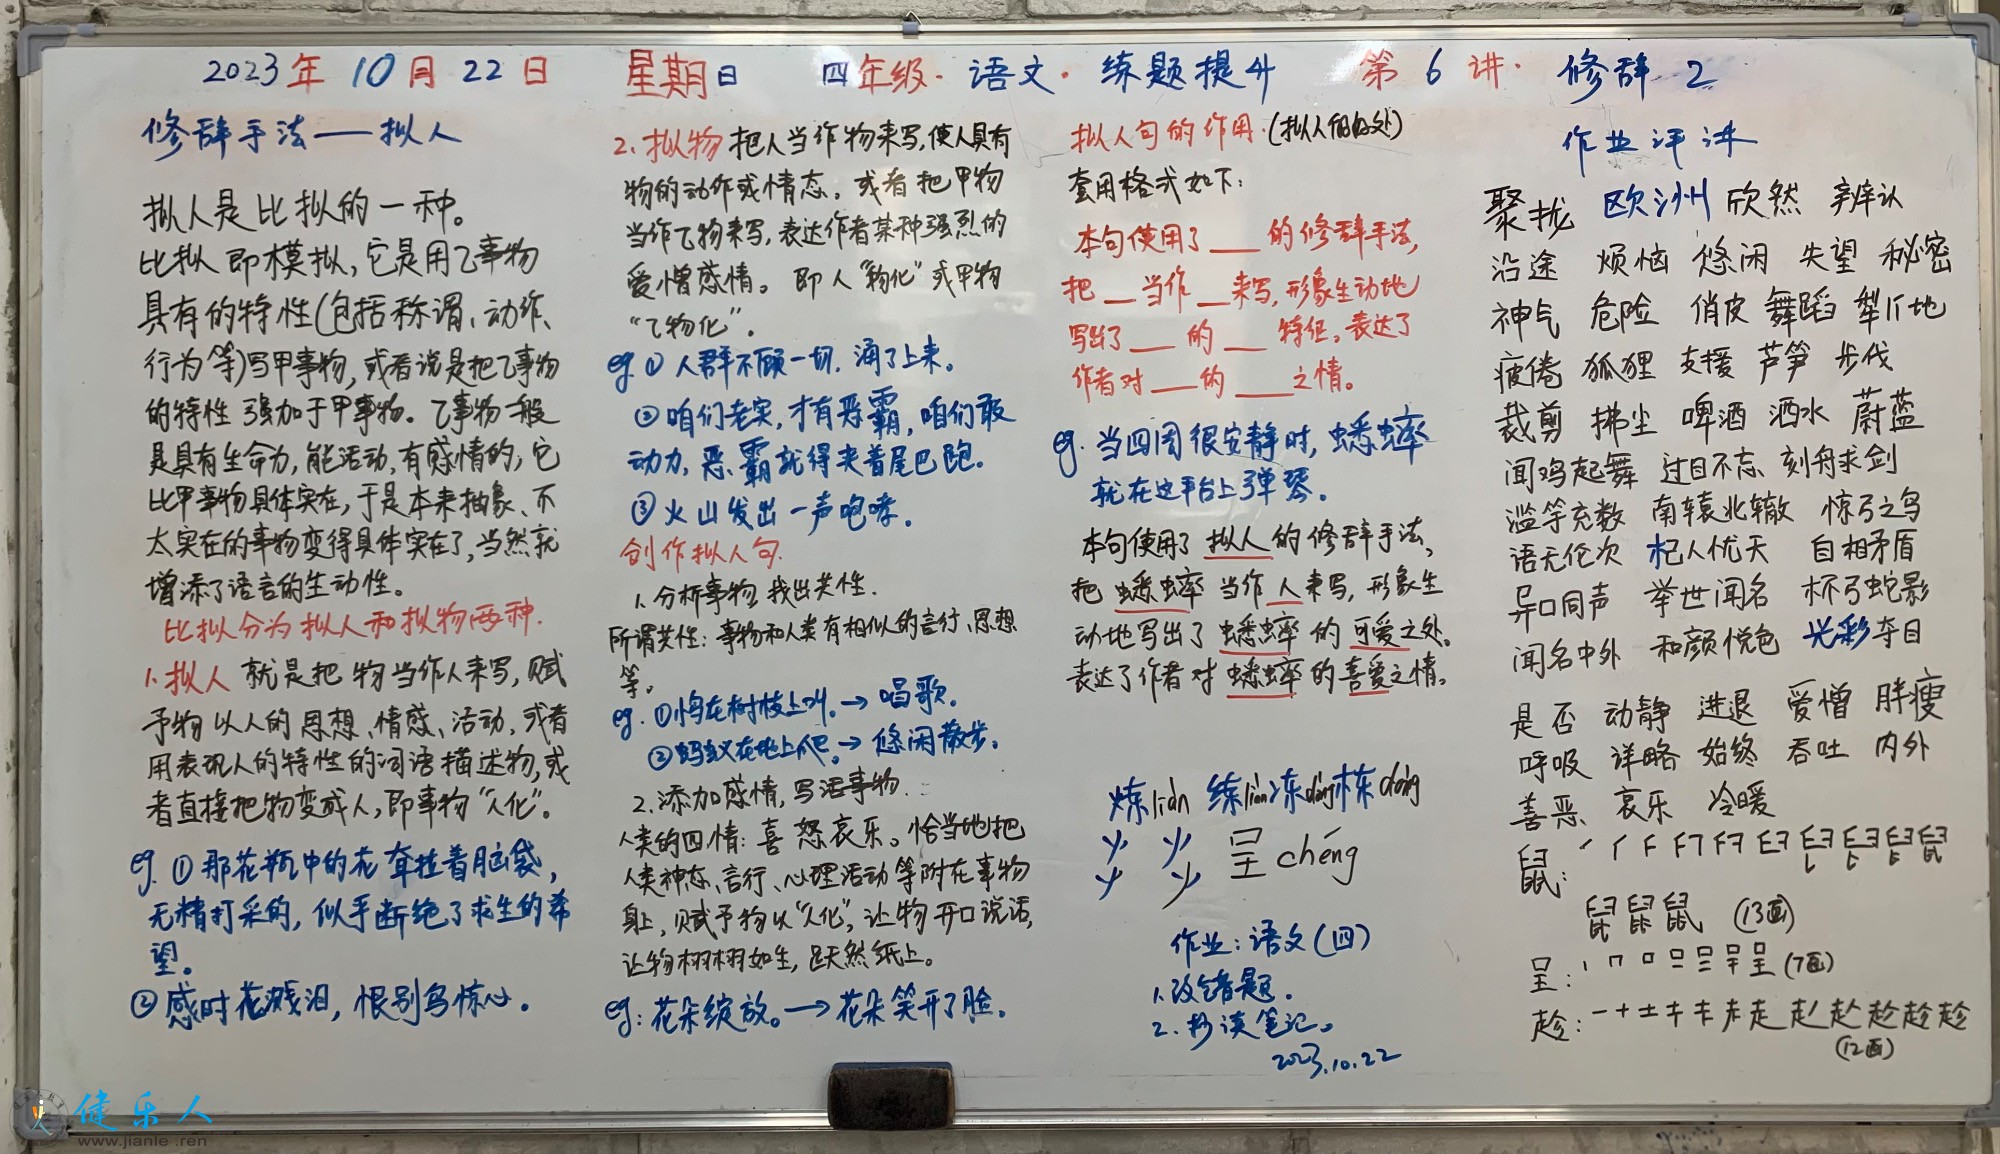 2023年10月22日 星期日 四年级·语文·练题提升 第6讲· 修辞2
修辞手法——拟人
拟人是比拟的一种。
比拟即模拟,它是用乙事物
具有的特性(包括称谓、动作、
行为等)写甲事物,或者说是把乙事物
的特性强加于甲事物。乙事物一般
是具有生命力,能活动,有感情的,它
比甲事物具体实在,于是本来抽象、不
太实在的事物变得具体实在了,当然就
增添了语言的生动性。
比拟分为拟人和拟物两种.
1.拟人 就是把物当作人来写,赋
予物以人的思想、情感、活动,或者
用表现人的特性的词语描述物,或
者直接把物变成人,即事物“人化”。
eg.①那花瓶中的花耷拉着脑袋,
无精打采的,似乎断绝了求生的希
望。
②感时花溅泪,恨别鸟惊心。
2.拟物 把人当作物来写,使人具有
物的动作或情态。或者把甲物
当作乙物来写,表达作者某种强烈的
爱憎感情。即人“物化”或甲物
“乙物化”.
eg.①人群不顾一切.涌了上来。
②咱们老实,才有恶霸,咱们敢
动力,恶霸就得夹着尾巴跑.
③火山发出一声咆哮.
创作拟人句.
1.分析事物,找出共性.
所谓共性:事物和人类有相似的言行、思想
等。
eg.①鸟在树枝上叫.→唱歌.
②蚂蚁在地上爬.→悠闲散步.
2.添加感情,写活事物.
人类的四情:喜怒哀乐。恰当地把
人类神态、言行、心理活动等附在事物
身上,赋予物以“人化”,让物开口说话,
让物栩栩如生,跃然纸上。
eg:花朵绽放。→花朵笑开了脸.
拟人句的作用.(拟人的好处)
套用格式如下:
本句使用了___的修辞手法,
把__当作__来写,形象生动地
写出了___的___特征。表达了
作者对___的___之情。
eg.当四周很安静时,蟋蟀
就在这平台上弹琴。
本句使用了拟人的修辞手法,
把蟋蟀当作人来写,形象生
动地写出了蟋蟀的可爱之处.
表达了作者对蟋蟀的喜爱之情.
炼liàn 练liàn 冻dòng 栋dòng
呈chéng
作业:语文(四)
1.改错题.
2.抄读笔记。
2023.10.22
作业评讲
聚拢 欧洲 欣然 辨认
沿途 烦恼 悠闲 失望 秘密
神气 危险 俏皮 舞蹈 犁地
疲倦 狐狸 支援 芦笋 步伐
裁剪 拂尘 啤酒 洒水 蔚蓝
闻鸡起舞 过目不忘 刻舟求剑
滥竽充数 南辕北辙 惊弓之鸟
语无伦次 杞人忧天 自相矛盾
异口同声 举世闻名 杯弓蛇影
闻名中外 和颜悦色 光彩夺目
是否 动静 进退 爱憎 胖瘦
呼吸 详略 始终 吞吐 内外
善恶 哀乐 冷暖
鼠:
(13画)
呈: (7画)
趁:
(12画)
健乐人
www.jianle.ren